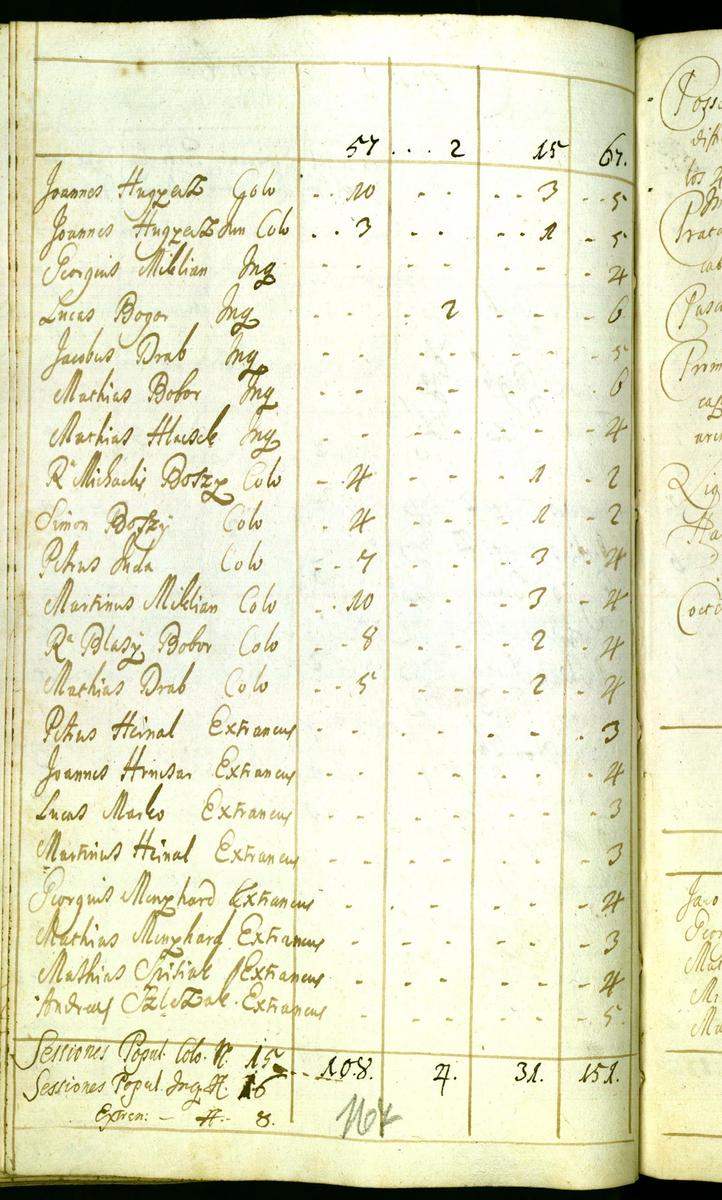 57 . . . 2 15 67.
Joannes Hugyecz Colo . . 10 - - - 3 - - 5
Joannes Hugyecz Jun Colo . . 3 - - - - 1 - 5
Georgius Miklian Inq - - - - - - - 4
Lucas Bogor Inq - - - 2 - - - - 6
Jacobus Drab Inq - - - - - - 5
Mathias Bobor Inq - - - - - - 6
Mathias Hlasek Inq - - - - - - - 4
Ra Michaelis Boszy Colo - 4 - - - 1 - 2
Simon Boszy Colo - 4 - - - 1 - 2
Petrus Juda Colo - - 7 - - - 3 - 4
Martinus Miklian Colo . . 10 - - - 3 - 4
Ra Blasy Bobor Colo - - 8 - - - 2 - 4
Mathias Drab Colo - - 5 - - - 2 - 4
Petrus Heinal Extraneus - - - - - - - 3
Joannes Extraneus - - - - - - 4
Lucas Marko Extraneus - - - - - - - 3
Martinus Heinal Extraneus - - - - - - 3
Georgius Menyhard Extraneus - - - - - - 4
Mathias Menyhard Extraneus - - - - - - 3
Mathias Extraneus - - - - - - 4
Andreas Extraneus - - - - - 5
Sessiones Popul. Colo. N. 15 - - 108. 4. 31. 151.
Sessiones Popul. Inq. N. 16
Extran: - N. 8.
164
Poss
dist
los
Prata
Pascu
Prom
Lig
Jaco
Geor
Mat
Mi
Ma